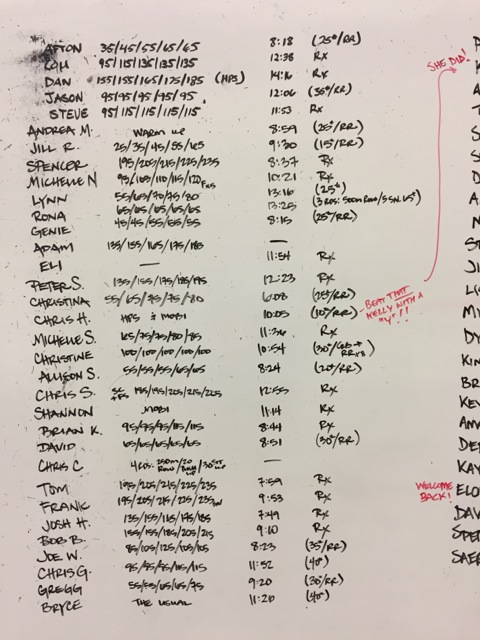 AFTON 35/45/55/65/65 8:18 (25#/RR)
95/115/135/135/135 12:38 RX
DAN 155/155/165/175/185 (HPS) 14:16 RX
JASON 95/95/95/95/95 12:06 (35#/RR)
STEVE 95/115/115/115/115 11:53 RX
ANDREA M. WARM UP 8:59 (25#/RR)
JILL R. 25/35/45/55/65 9:30 (15#/RR)
SPENCER 195/205/215/225/235 8:37 RX
MICHELLE N 95/105/110/115/120 10:21 RX
LYNN 55/65/70/75/80 13:16 (25#)
RONA 65/65/65/65/65 13:25
GENIE 45/45/55/55/55 8:15 (25#/RR)
ADAM 135/155/165/175/185 —
ELI — 11:54 RX
PETER S. 135/155/175/185/195 12:23 RX
CHRISTINA 55/65/75/75/80 6:08 (25#/RR)
CHRIS H. HPS & MOBI 10:05 (10#/RR) - BEAT THAT KELLY WITH A "Y"!!!
SHE DID!
MICHELLE S. 65/75/75/80/85 11:36 RX
CHRISTINE 100/100/100/100/100 10:54
ALLISON S. 55/55/55/65/65 8:24 (20#/RR)
CHRIS S. 195/195/205/215/225 12:55 RX
SHANNON MOBI 11:14 RX
BRIAN K. 95/95/95/115/115 8:44 RX
DAVID 65/65/65/65/65 8:51 (30#/RR)
CHRIS C. —
TOM 195/205/215/225/235 7:59 RX
FRANK 195/205/215/225/235 9:53 RX
JOSH H. 135/155/165/175/185 7:49 RX
BOB B. 155/155/185/205/215 9:10 RX
JOE W. 85/105/125/105/105 8:23 (35#/RR)
CHRIS G. 95/95/95/115/115 11:52 (40#)
GREGG 55/55/65/65/75 9:20 (30#/RR)
BRYCE THE USUAL 11:20 (40#)
WELCOME BACK!